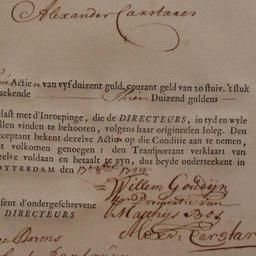 Alexander Carstares
Actien van vyf duizent guld, courant geld van 20 stuiv. 't stuk
akende Duizend guldens
elast met d'Inroepinge, die de DIRECTEURS, in tyd en wyle
llen vinden te behooren, volgens haar origineelen Inleg. Den
cceptant bekent dezelve Actie op die Conditie aan te nemen,
t volkomen genoegen: den Transportant verklaart van
zelve voldaan en betaalt te zyn, dus beyde onderteekent in
OTTERDAM den
Willem Goudÿn
sent d'ondergeschrevene Procuratie van
DIRECTEURS Matthijs Bos
Barons Carstar